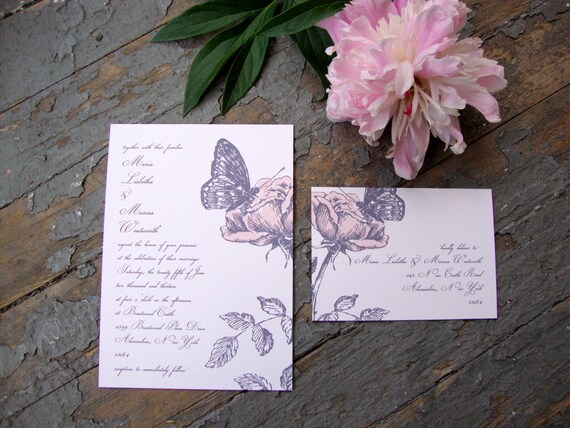 together with their families
Maria
Lisbitha
&
Marcus
Wentworth
request the honor of your presence
at the celebration of their marriage
Saturday, the twenty fifth of June
two thousand and thirteen
at four o'clock in the afternoon
at Brentwood Castle
Brentwood Place Drive
Alexandria, New York
reception to immediately follow
kindly deliver to
Maria Lisbitha & Marcus Wentworth
New Castle Road
Alexandria, New York